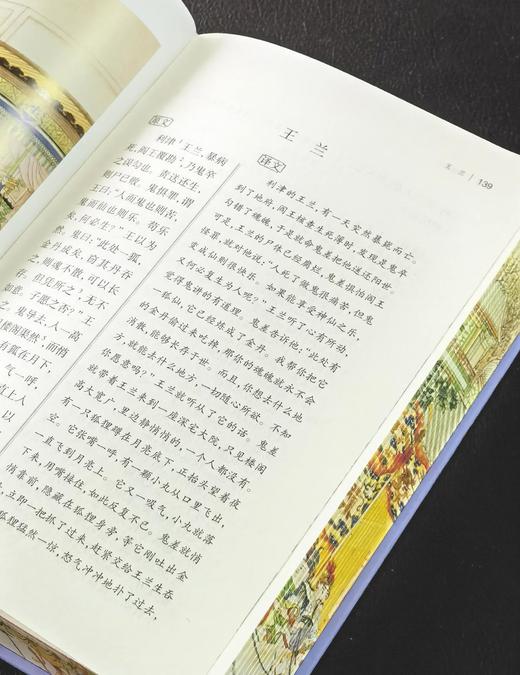 王 兰 | 139
王 兰
原文
利津¹王兰，暴病
死，阎王覆勘²，乃鬼卒
之误勾也。责送还生，
则尸已败。鬼惧罪，谓
王曰：“人而鬼也则苦，
鬼而仙也则乐。苟乐
矣，何必生？”王以为
然。鬼曰：“此处一狐，
金丹成矣，窃其丹吞
之，则魂不散，可以长
存。但凭所之，无不
如意。子愿之否？”王
。鬼导去，入一高
楼阁渠然，而悄
有狐在月下，
气一呼，
直上入
以
译文
利津的王兰，有一天突然暴毙而亡。
到了地府，阎王核查生死簿时，发现是鬼卒
勾错了魂魄，于是就命鬼差把他送还阳世。
可是，王兰的尸体已经腐烂，鬼差惧怕阎王
怪罪，就对他说：“人死了做鬼很痛苦，但鬼
变成仙则很快乐。如果能享受神仙之乐，
又何必复生为人呢？”王兰听了心有所动，
觉得鬼讲的有道理。鬼差告诉他：“此处有
一狐仙，它已经炼成了金丹。我帮你把它
的金丹偷过来吃掉，那你的魂魄就永不会
消散，能够长存于世。而且，你想去什么地
方，就能去什么地方，一切随心所欲。不知
你愿意吗？”王兰就听从了它的话。鬼差
就带着王兰来到一座深宅大院，只见楼阁
高大宽广，里边静悄悄的，一个人都没有。
有一只狐狸蹲在月亮底下，正抬头望着夜
空。它张嘴一呼，有一颗小丸从口里飞出，
一直飞到月亮上。它又一吸气，小丸就落
下来，用嘴接住，如此反复不已。鬼差就悄
悄靠前，隐藏在狐狸身旁，等它刚吐出金
，立即一把抓了过来，赶紧交给王兰生吞
狐狸猛然一惊，怒气冲冲地扑了过去，